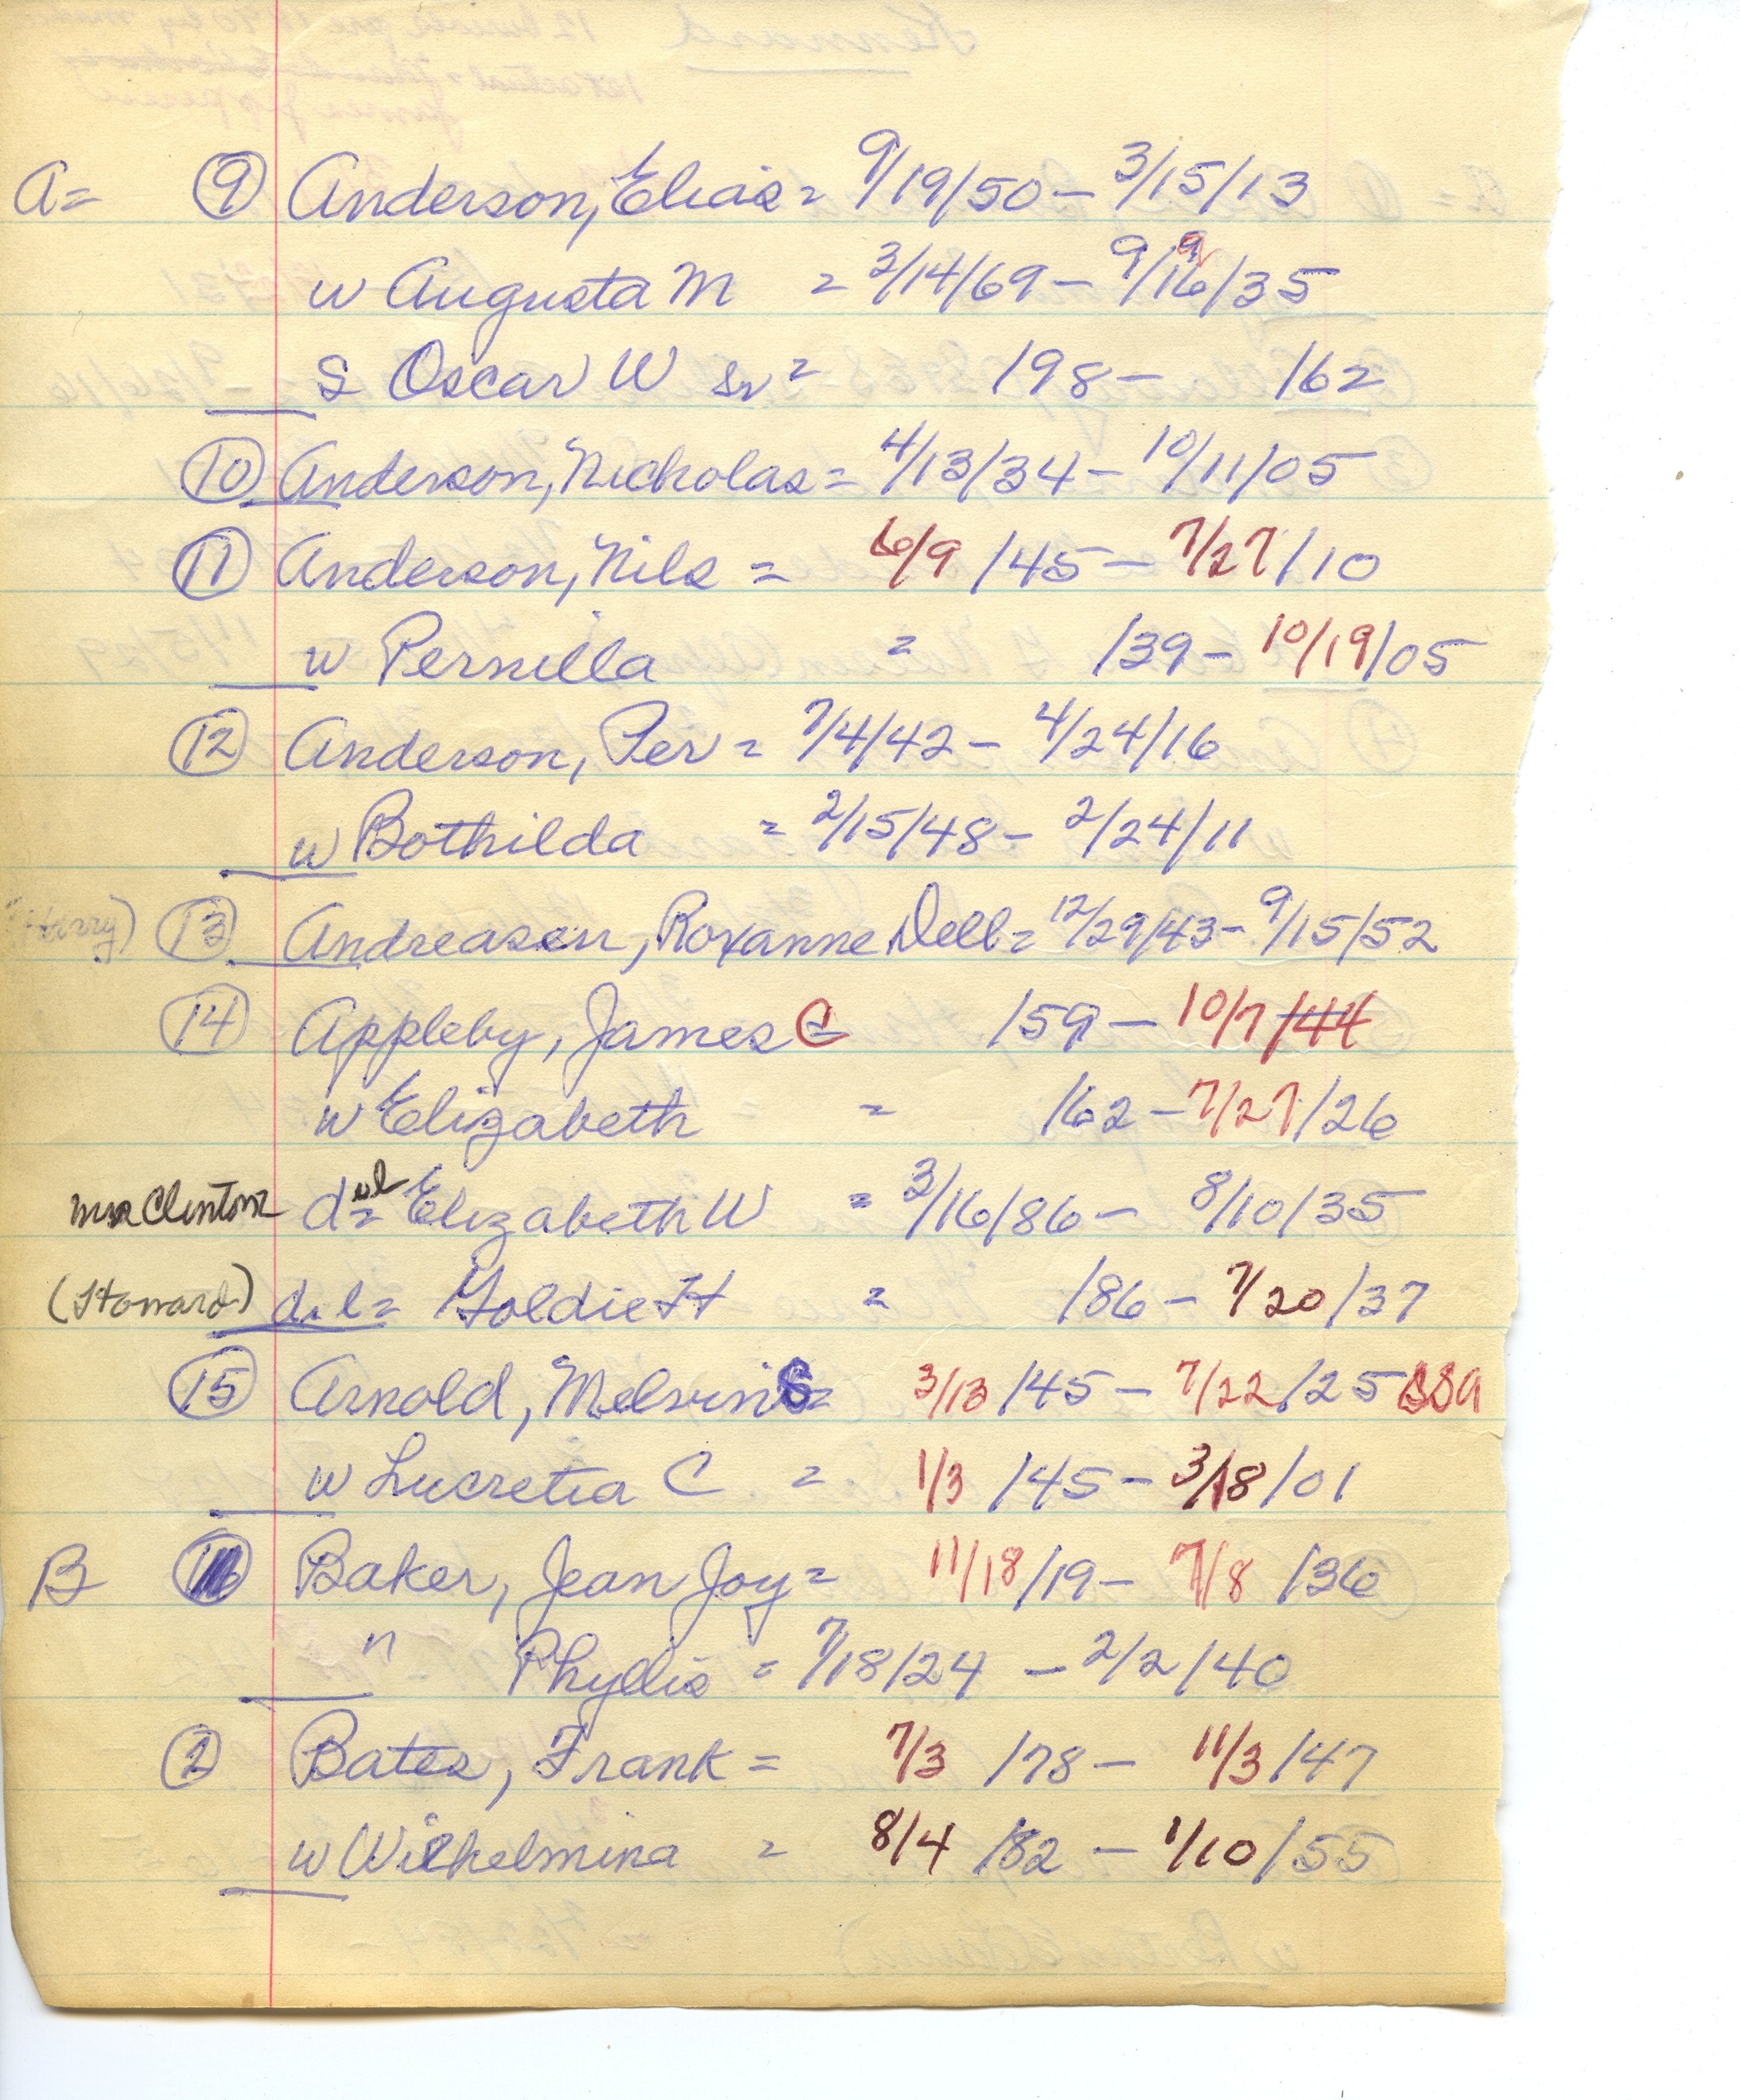 A= 9 Anderson, Elias = 9/19/50 - 3/15/13
w Augusta M = 3/14/69 - 9/16/35
S Oscar W Sr = /98 - /62
10 Anderson, Nicholas = 4/13/34 - 10/11/05
11 Anderson, Nils = 6/9/45 - 7/27/10
w Pernilla = /39 - 10/19/05
12 Anderson, Per = 7/4/42 - 4/24/16
w Bothilda = 2/15/48 - 2/24/11
Harry) 13 Andreasen, Roxanne Dell = 12/29/43 - 9/15/52
14 Appleby, James C /59 - 10/7/44
w Elizabeth = /62 - 7/27/26
Mrs Clinton d il = Elizabeth W = 3/16/86 - 8/10/35
(Howard) d.l = Goldie H = /86 - 7/20/37
15 Arnold, Melvin S = 3/13/45 - 7/22/25
w Lucretia C = 1/3/45 - 3/18/01
B Baker, Jean Joy = 11/18/19 - 7/8/36
" Phyllis = 7/18/24 - 2/2/40
2 Bates, Frank = 7/3/78 - 11/3/47
w Wilhelmina = 8/4/82 - 1/10/55